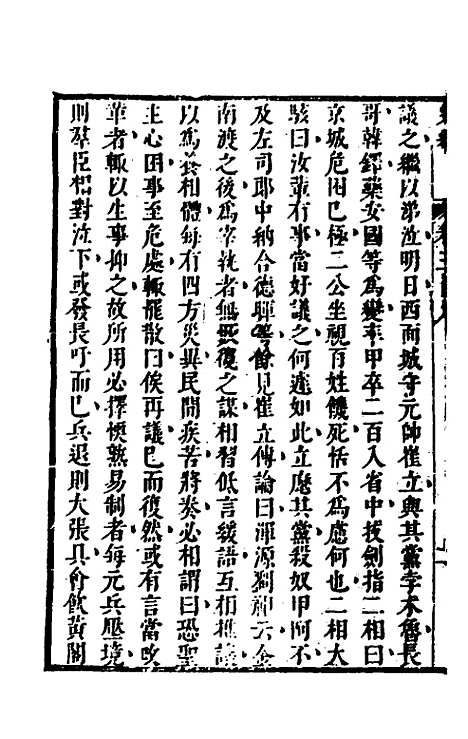 議之繼以涕泣明日西面城守元帥崔立與其黨李术魯長
哥韓鐸藥安國等爲變率甲卒二百入省中拔劍指二相曰
京城危困已極二公坐視百姓餓死恬不爲慮何也二相大
駭曰汝輩有事當好議之何遽如此立麾其黨殺奴申阿不
及左司郎中納合德暉等餘見崔立傳論曰渾源劉祁云金
南渡之後爲宰執者無恢復之謀相習低言緩語互相推讓
以爲養相體每有四方災異民間疾苦將奏必相謂曰恐聖
主心困事至危處輒罷散曰俟再議已而復然或有言當改
革者輒以生事抑之故所用必擇愞熟易制者每元兵壓境
則羣臣相對泣下或發長吁而已兵退則大張具會飮黃閣